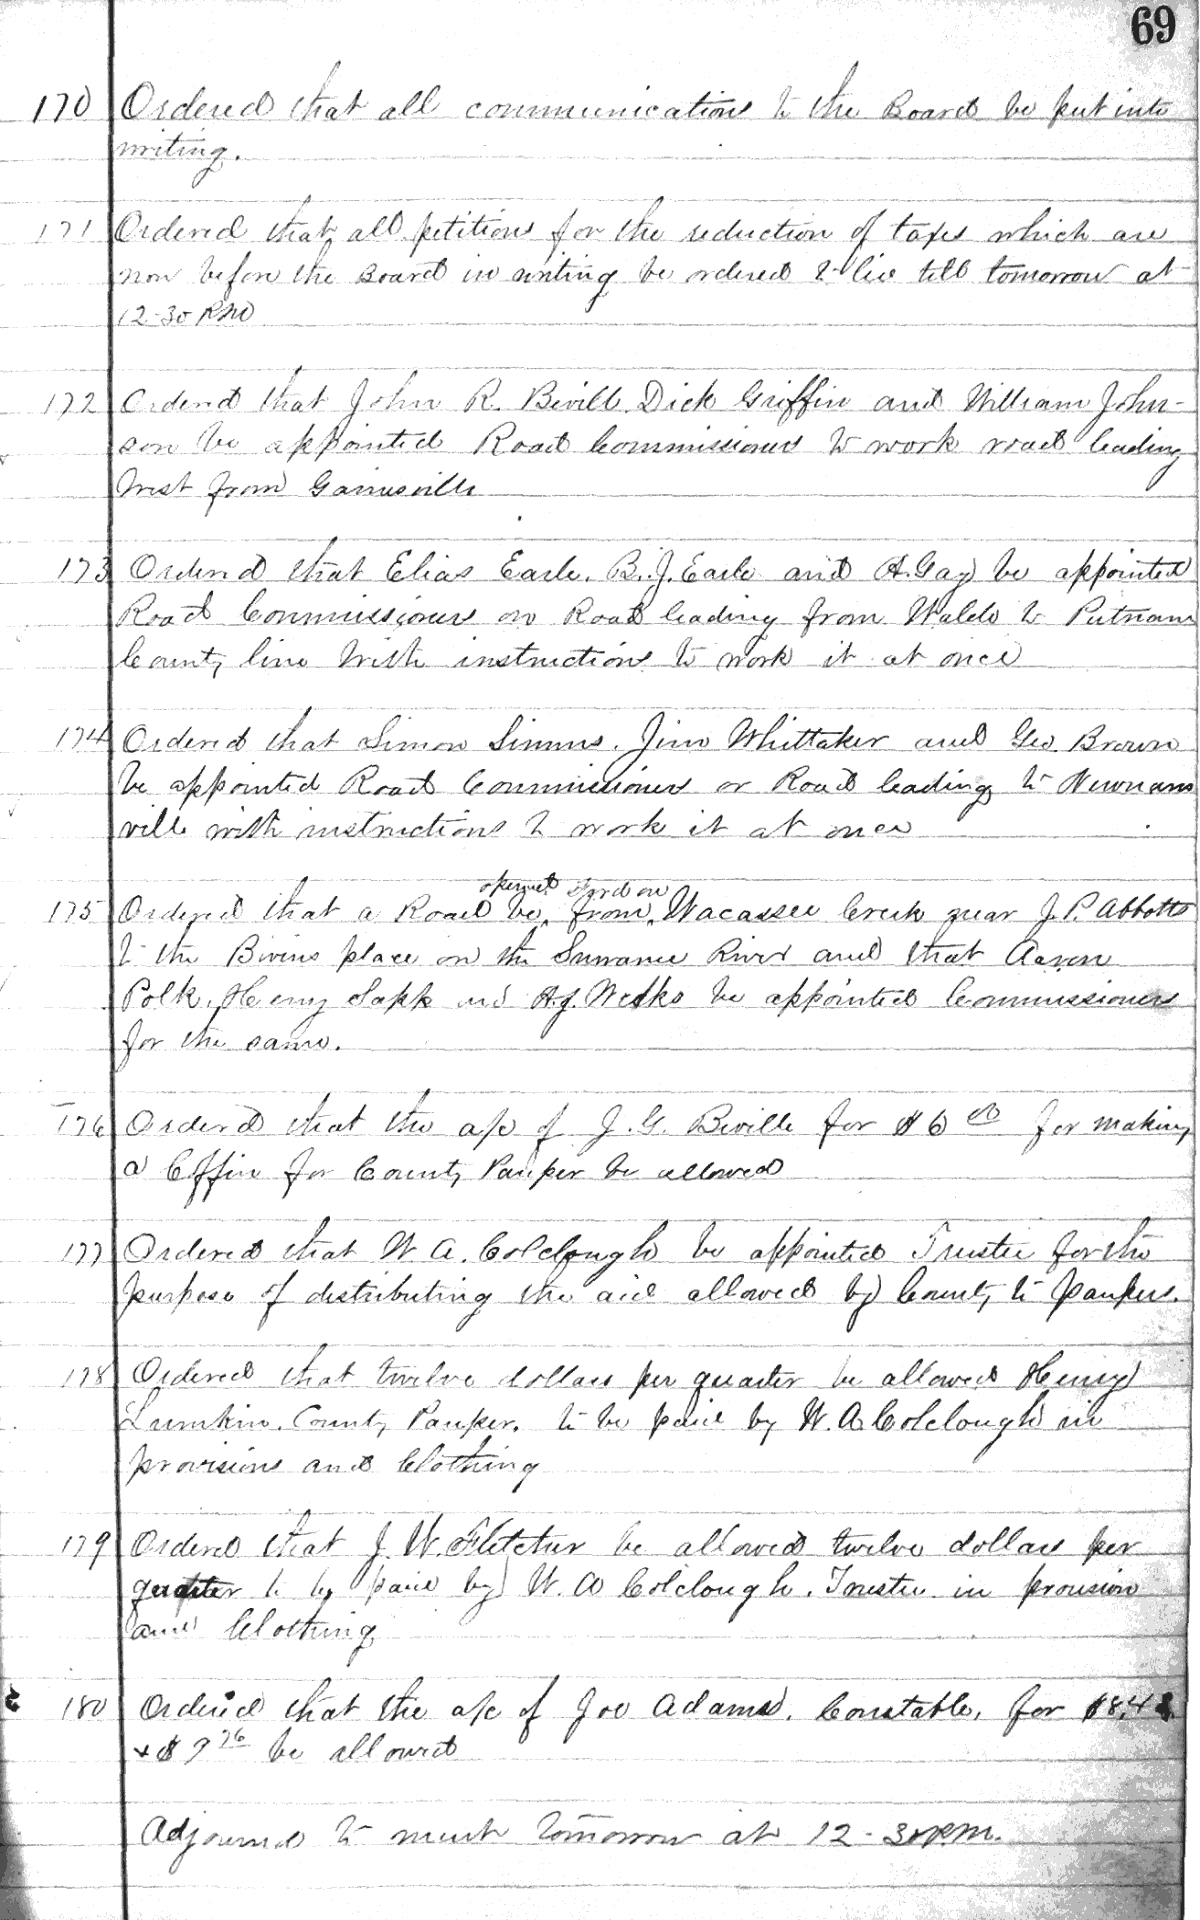 69
170 Ordered that all communications to the Board be put into
writing.
171 Ordered that all petitions for the reduction of taxes which are
now before the Board in writing be ordered to lie till tomorrow at
12-30 P.M.
172 Ordered that John R. Bevill, Dick Griffin and William John-
son be appointed Road Commissioners to work road leading
West from Gainesville
173 Ordered that Elias Earle, B.J. Earle and H. Gay be appointed
Road Commissioners on Road leading from Waldo to Putnam
County line With instructions to work it at once
174 Ordered that Simon Simms, Jim Whittaker and Geo. Brown
be appointed Road Commissioners on Road leading to Newnans
ville with instructions to work it at once
opened
175 Ordered that a Road be from Wacassee Creek near J.P. Abbotts
to the Bivins place on the Suwanee River and that Aaron
Polk, Henry Sapk and H.J. Weeks be appointed Commissioners
for the same.
176 Ordered that the a/c of J.G. Beville for $6 00 for making
a Coffin for County Pauper be allowed
177 Ordered that W.A. Colclough be appointed Trustee for the
purpose of distributing the aid allowed by County to paupers.
178 Ordered that twelve dollars per quarter be allowed Henry
Lumkin, County Pauper, to be paid by W.A. Colclough in
provisions and Clothing
179 Ordered that J.W. Fletcher be allowed twelve dollars per
quarter to be paid by W.A Colclough, Trustee in provision
and Clothing
180 Ordered that the a/c of Joe Adams, Constable, for
+ $9 76 be allowed
Adjourned to meet tomorrow at 12-30 P.M.